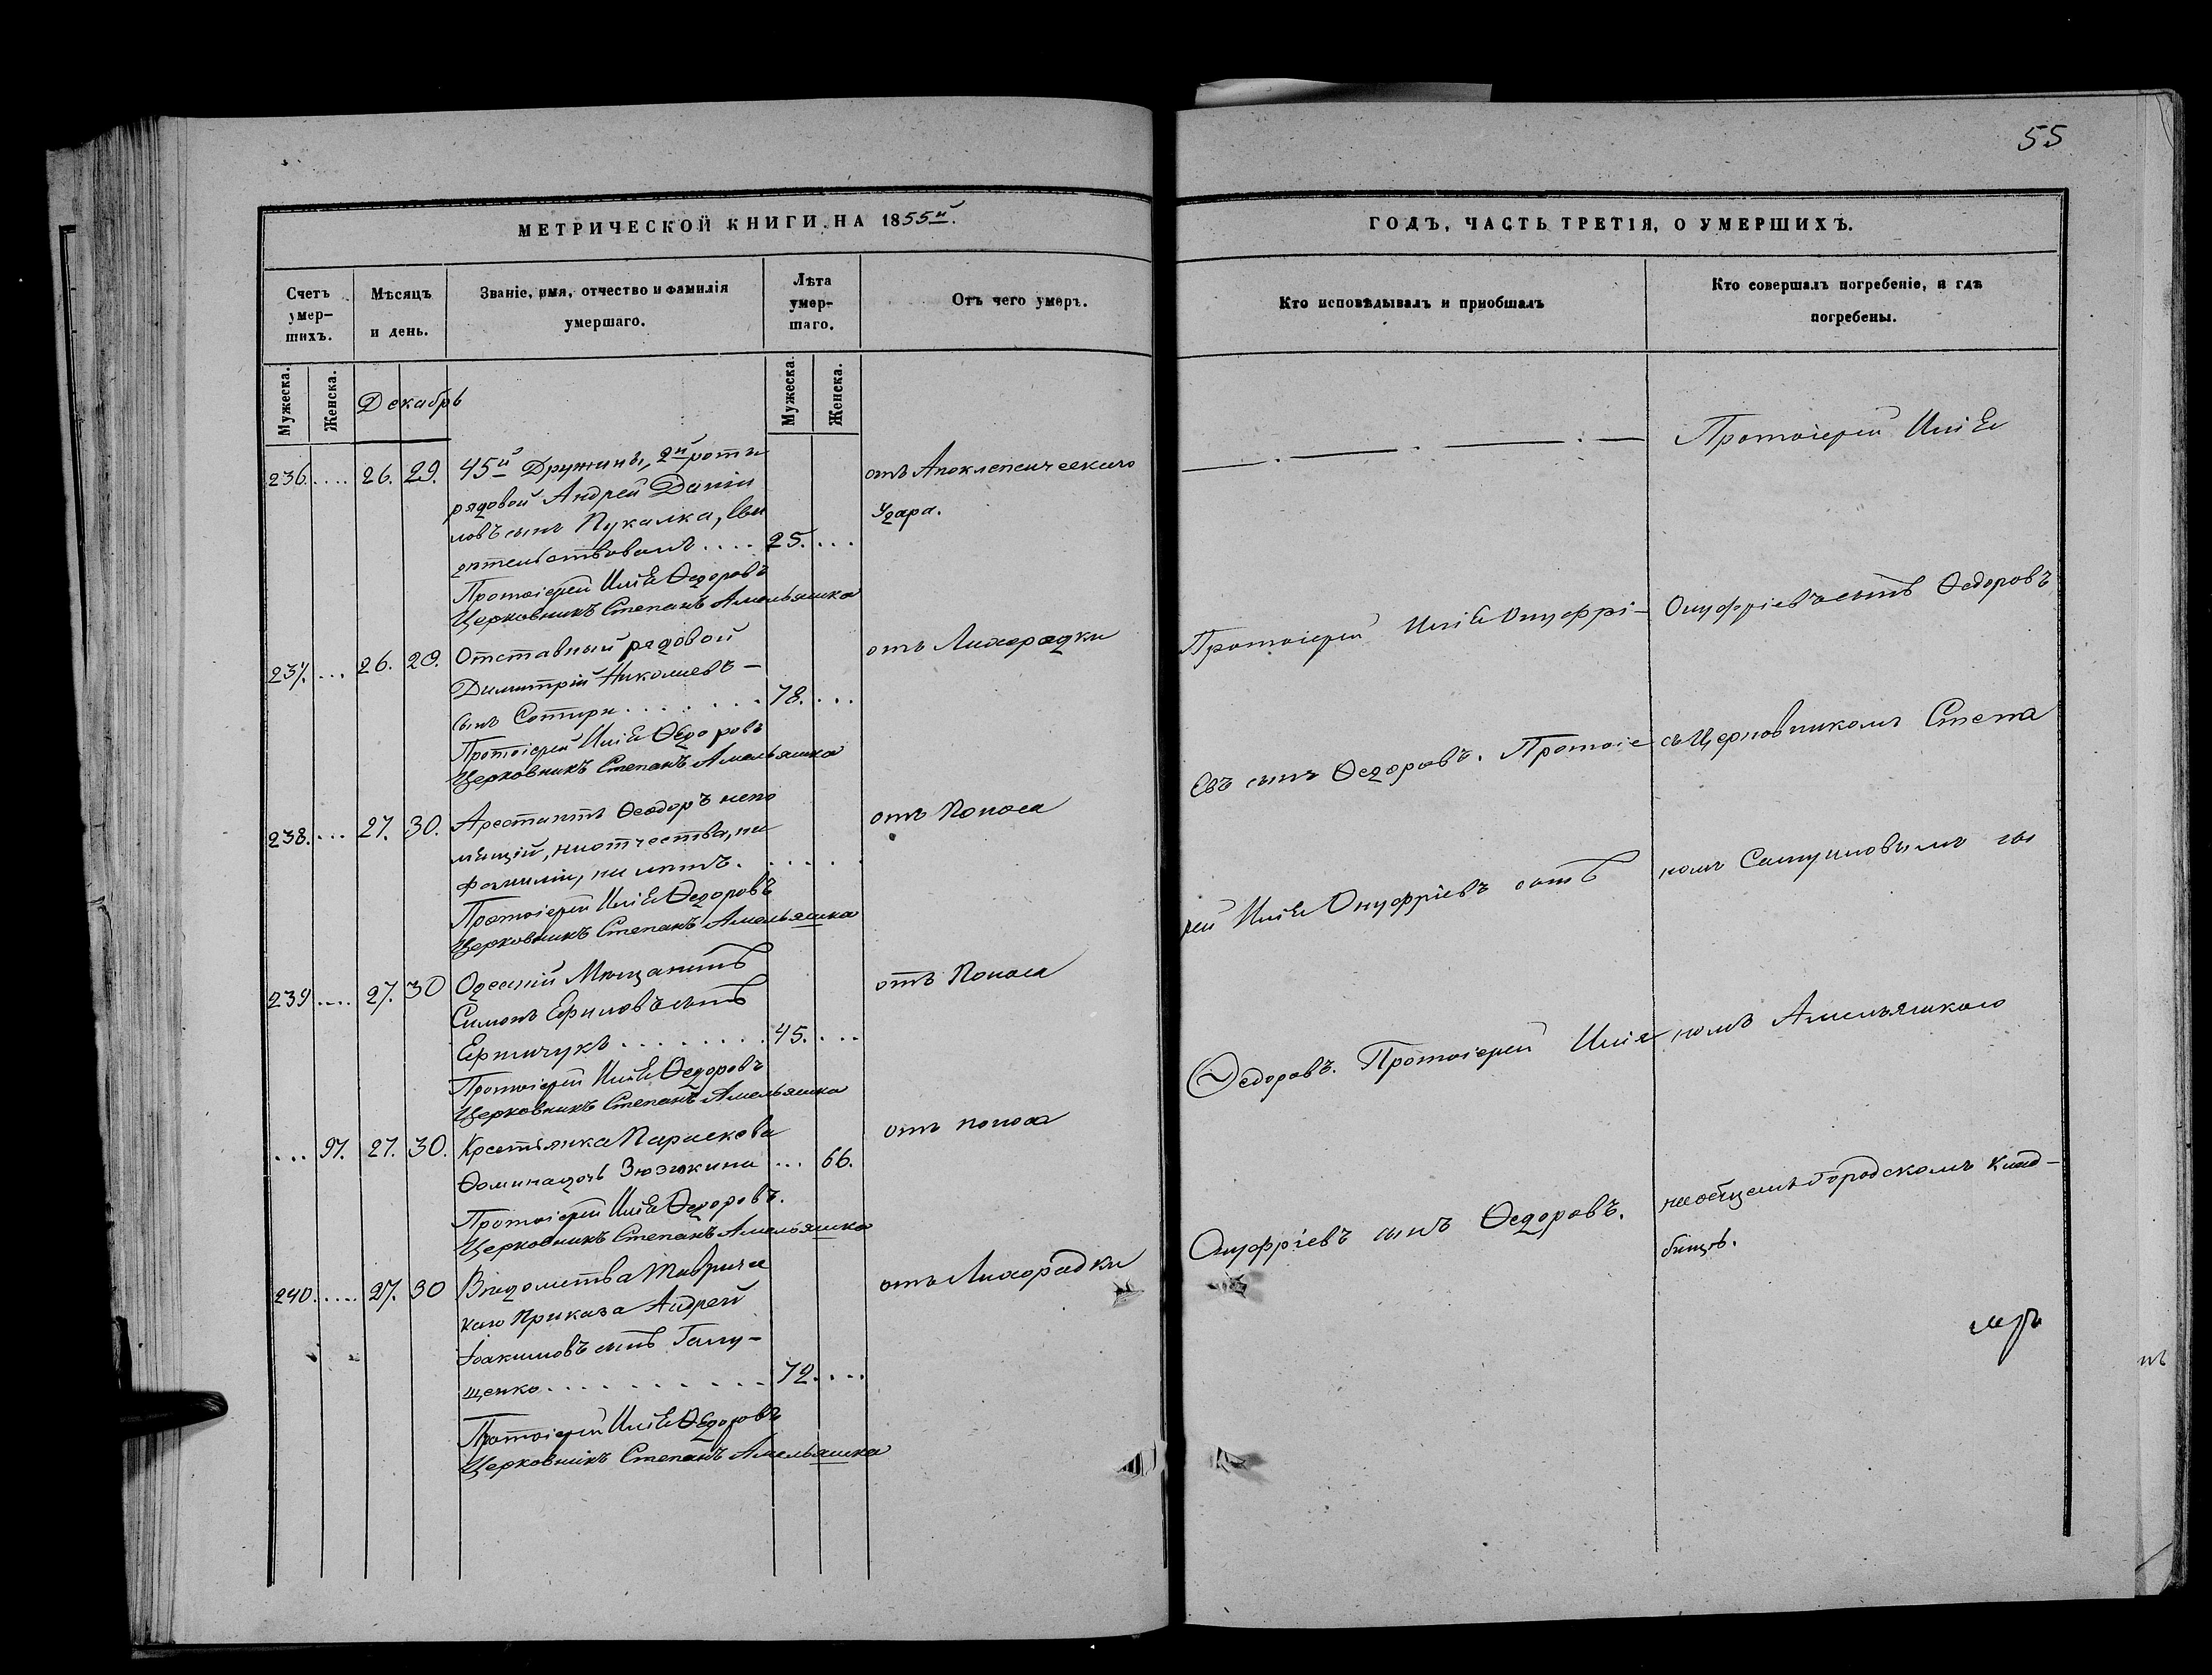 55
МЕТРИЧЕСКОЙ КНИГИ НА 1855й.
ГОДЪ, ЧАСТЬ ТРЕТІЯ, О УМЕРШИХЪ.
Счетъ умер-
шихъ.
Мѣсяцъ
и день.
Званіе, имя, отчество и фамилія
умершаго.
Лѣта
умер-
шаго.
Отъ чего умеръ.
Кто исповѣдывалъ и приобщалъ
Кто совершалъ погребеніе, и гдѣ
погребены.
Мужеска.
Женска.
Декабрь
Мужеска.
Женска.
236. .... 26. 29. 45й Дружины, 2й роты
рядовой Андрей Даніи
ловъ сынъ Пукалка, Сви
дѣтельствовалъ .... 25. ...
отъ Апоклепсическаго
Удара.
Протоіерей Илія Ѳедоровъ
Церковникъ Степанъ Амельяшка
237. ... 26. 29. Отставный рядовой
Димитрій Николаевъ –
сынъ Сотири . . . . . . . 78. ...
отъ Лихорадки
Протоіерей Илія Ѳедоровъ
Церковникъ Степанъ Амельяшка
238. ... 27. 30. Арестантъ Ѳеодоръ непо
мнящій, ни отчества, ни
фамиліи, ни лѣтъ. . . . . .
отъ Поноса
Протоіерей Илія Ѳедоровъ
Церковникъ Степанъ Амельяшка
239 .... 27. 30 Одесскій Мѣщанинъ
Симонъ Ефимовъ сынъ
. . . . . . . . 45. ...
отъ Поноса
Протоіерей Илія Ѳедоровъ
Церковникъ Степанъ Амельяшка
... 97. 27. 30. Крестьянка Параскева
Ѳомина дочь Зюзюкина ... 66.
отъ поноса
Протоіерей Илія Ѳедоровъ.
Церковникъ Степанъ Амельяшка
240. .... 27. 30 Вѣдомства Тавричес
каго Приказа Андрей
Іоакимовъ сынъ Галу–
щенко . . . . . . . . . . . 72. ...
отъ Лихорадки
Протоіерей Илія Ѳедоровъ
Церковникъ Степанъ Амельяшка
Протоіерей Илія Онуфрі–
евъ сынъ Ѳедоровъ. Протоіе
рей Илія Онуфріевъ сынъ
Ѳедоровъ. Протоіерей Илія
Онуфріевъ сынъ Ѳедоровъ.
Протоіерей Илія
Онуфріевъ сынъ Ѳедоровъ
съ Церковникомъ Степа
номъ сы
номъ Амельяшкою
на общемъ Городскомъ клад–
бищѣ.